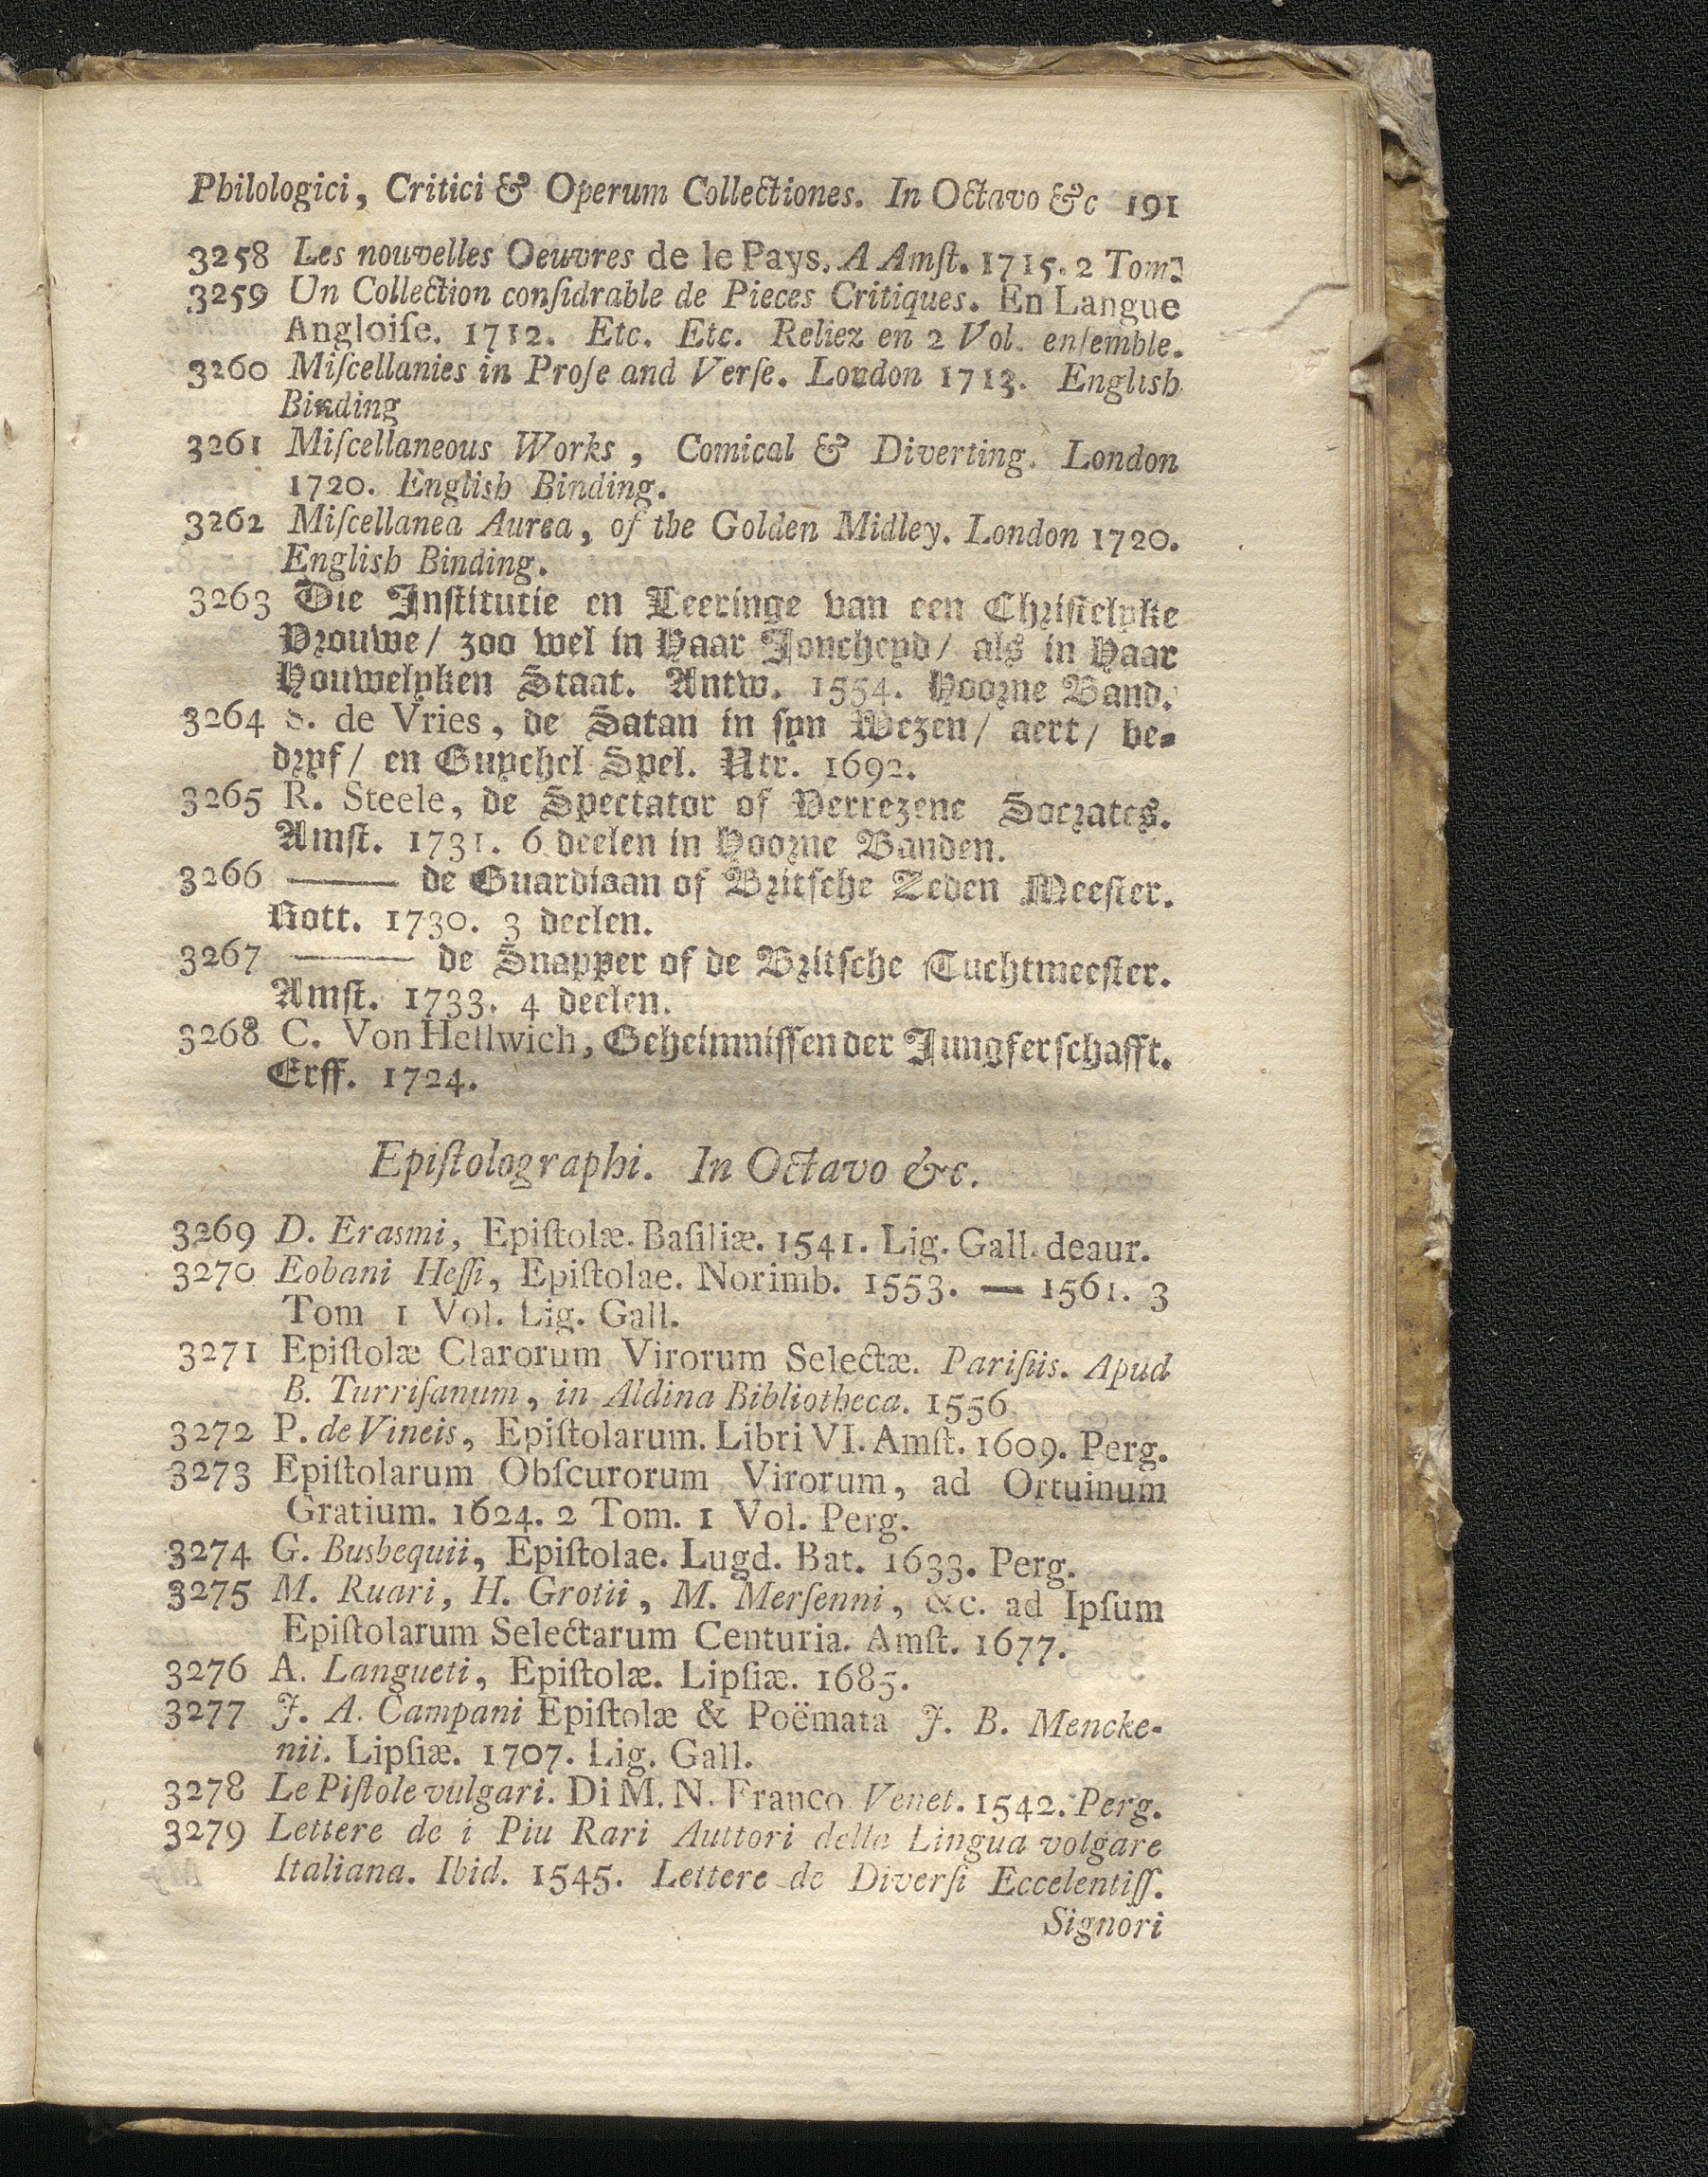 Philologici, Critici & Operum Collectiones. In Octavo &c 191
3258 Les nouvelles Oeuvres de le Pays. A Amſt. 1715. 2 Tom.
3259 Un Collection conſidrable de Pieces Critiques. En Langue
Angloiſe. 1712. Etc. Etc. Reliez en 2 Vol. enſemble.
3260 Miſcellanies in Proſe and Verſe. London 1713. English
Binding
3261 Miſcellaneous Works, Comical & Diverting. London
1720. English Binding.
3262 Miſcellanea Aurea, of the Golden Midley. London 1720.
English Binding.
3263 Die Inſtitutie en Leeringe van een Chriſtelyke
Vrouwe/ zoo wel in Haar Joncheyd/ als in Haar
Houwelyken Staat. Antw. 1554. Hoorne Band.
3264 S. de Vries, de Satan in ſyn Wezen/ aert/ be-
dryf/ en Guychel Spel. Utr. 1692.
3265 R. Steele, de Spectator of Verrezene Socrates.
Amſt. 1731. 6 deelen in Hoorne Banden.
3266 —— de Guardiaan of Britſche Zeden Meeſter.
Rott. 1730. 3 deelen.
3267 —— de Snapper of de Britſche Tuchtmeeſter.
Amſt. 1733. 4 deelen.
3268 C. Von Hellwich, Geheimniſſen der Jungferſchafft.
Erff. 1724.
Epiſtolographi. In Octavo &c.
3269 D. Erasmi, Epiſtolæ. Baſiliæ. 1541. Lig. Gall. deaur.
3270 Eobani Heſſi, Epiſtolae. Norimb. 1553. — 1561. 3
Tom 1 Vol. Lig. Gall.
3271 Epiſtolæ Clarorum Virorum Selectæ. Pariſiis. Apud
B. Turriſanum, in Aldina Bibliotheca. 1556.
3272 P. de Vineis, Epiſtolarum. Libri VI. Amſt. 1609. Perg.
3273 Epiſtolarum Obſcurorum Virorum, ad Ortuinum
Gratium. 1624. 2 Tom. 1 Vol. Perg.
3274 G. Busbequii, Epiſtolae. Lugd. Bat. 1633. Perg.
3275 M. Ruari, H. Grotii, M. Merſenni, &c. ad Ipſum
Epiſtolarum Selectarum Centuria. Amſt. 1677.
3276 A. Langueti, Epiſtolæ. Lipſiæ. 1685.
3277 J. A. Campani Epiſtolæ & Poëmata J. B. Mencke-
nii. Lipſiæ. 1707. Lig. Gall.
3278 Le Piſtole vulgari. Di M. N. Franco Venet. 1542. Perg.
3279 Lettere de i Piu Rari Auttori della Lingua volgare
Italiana. Ibid. 1545. Lettere de Diverſi Eccelentiſſ.
Signori